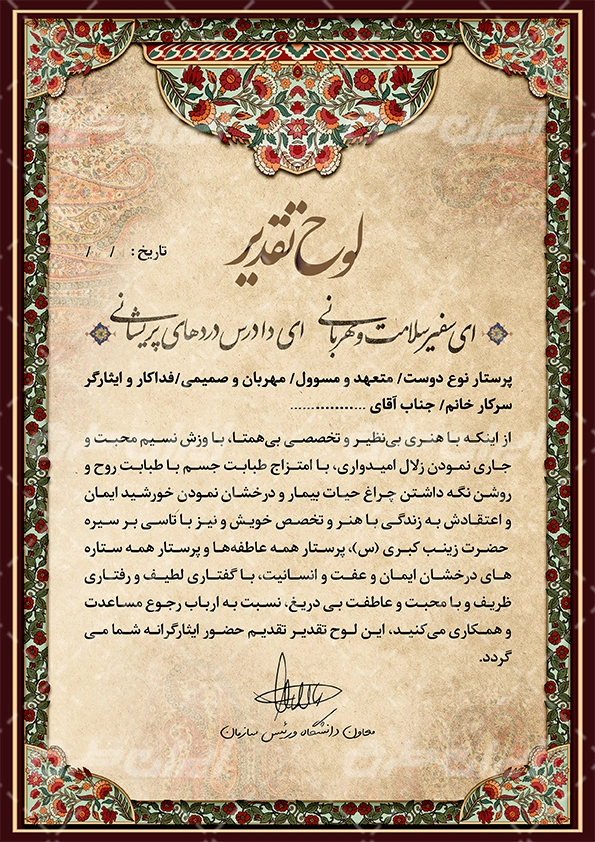 لوح تقدیر
تاریخ: / /
ای سفیر سلامت و مهربانی ای دادرس دردهای پریشانی
پرستار نوع دوست/ متعهد و مسوول/ مهربان و صمیمی/فداکار و ایثارگر
سرکار خانم/ جناب آقای ......................
از اینکه با هنری بی‌نظیر و تخصصی بی‌همتا، با وزش نسیم محبت و
جاری نمودن زلال امیدواری، با امتزاج طبابت جسم با طبابت روح و
روشن نگه داشتن چراغ حیات بیمار و درخشان نمودن خورشید ایمان
و اعتقادش به زندگی با هنر و تخصص خویش و نیز با تاسی بر سیره
حضرت زینب کبری (س)، پرستار همه عاطفه‌ها و پرستار همه ستاره
های درخشان ایمان و عفت و انسانیت، با گفتاری لطیف و رفتاری
ظریف و با محبت و عاطفت بی دریغ، نسبت به ارباب رجوع مساعدت
و همکاری می‌کنید، این لوح تقدیر تقدیم حضور ایثارگرانه شما می
گردد.
معاون دانشگاه و رئیس سازمان